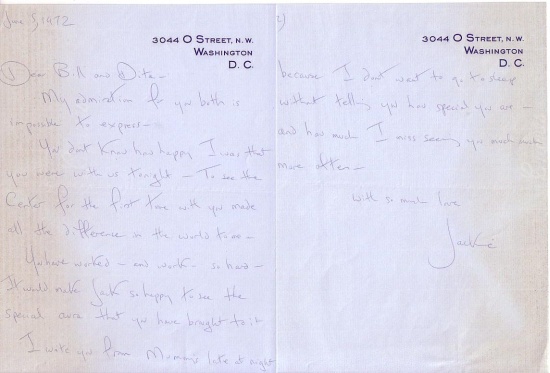 June 5, 1972
3044 O Street, N.W.
Washington
D. C.
Dear Bill and Dita—
My admiration for you both is
impossible to express—
You don't know how happy I was that
you were with us tonight — To see the
Center for the first time with you made
all the difference in the world to me—
You have worked — and work — so hard—
It would make Jack so happy to see the
special that you have brought to it
I write you from Mummy's late at night
2)
3044 O Street, N.W.
Washington
D. C.
because I don't want to go to sleep
without telling you how special you are —
and how much I miss seeing you much much
more often —
with so much love
Jackie